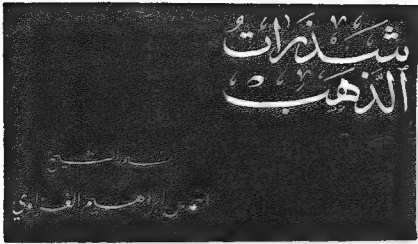 شَذَرَاتُ
الذَّهَب
أحمد بن إبراهيم الغزاوي